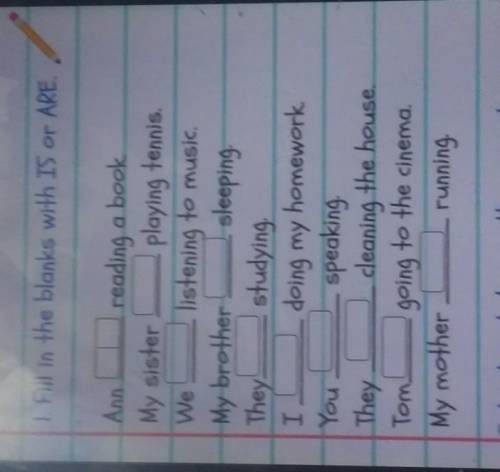 1. Fill in the blanks with IS or ARE.
Ann ____ reading a book
My sister ____ playing tennis.
We ____ listening to music.
My brother ____ sleeping.
They ____ studying.
I ____ doing my homework
You ____ speaking.
They ____ cleaning the house.
Tom ____ going to the cinema.
My mother ____ running.